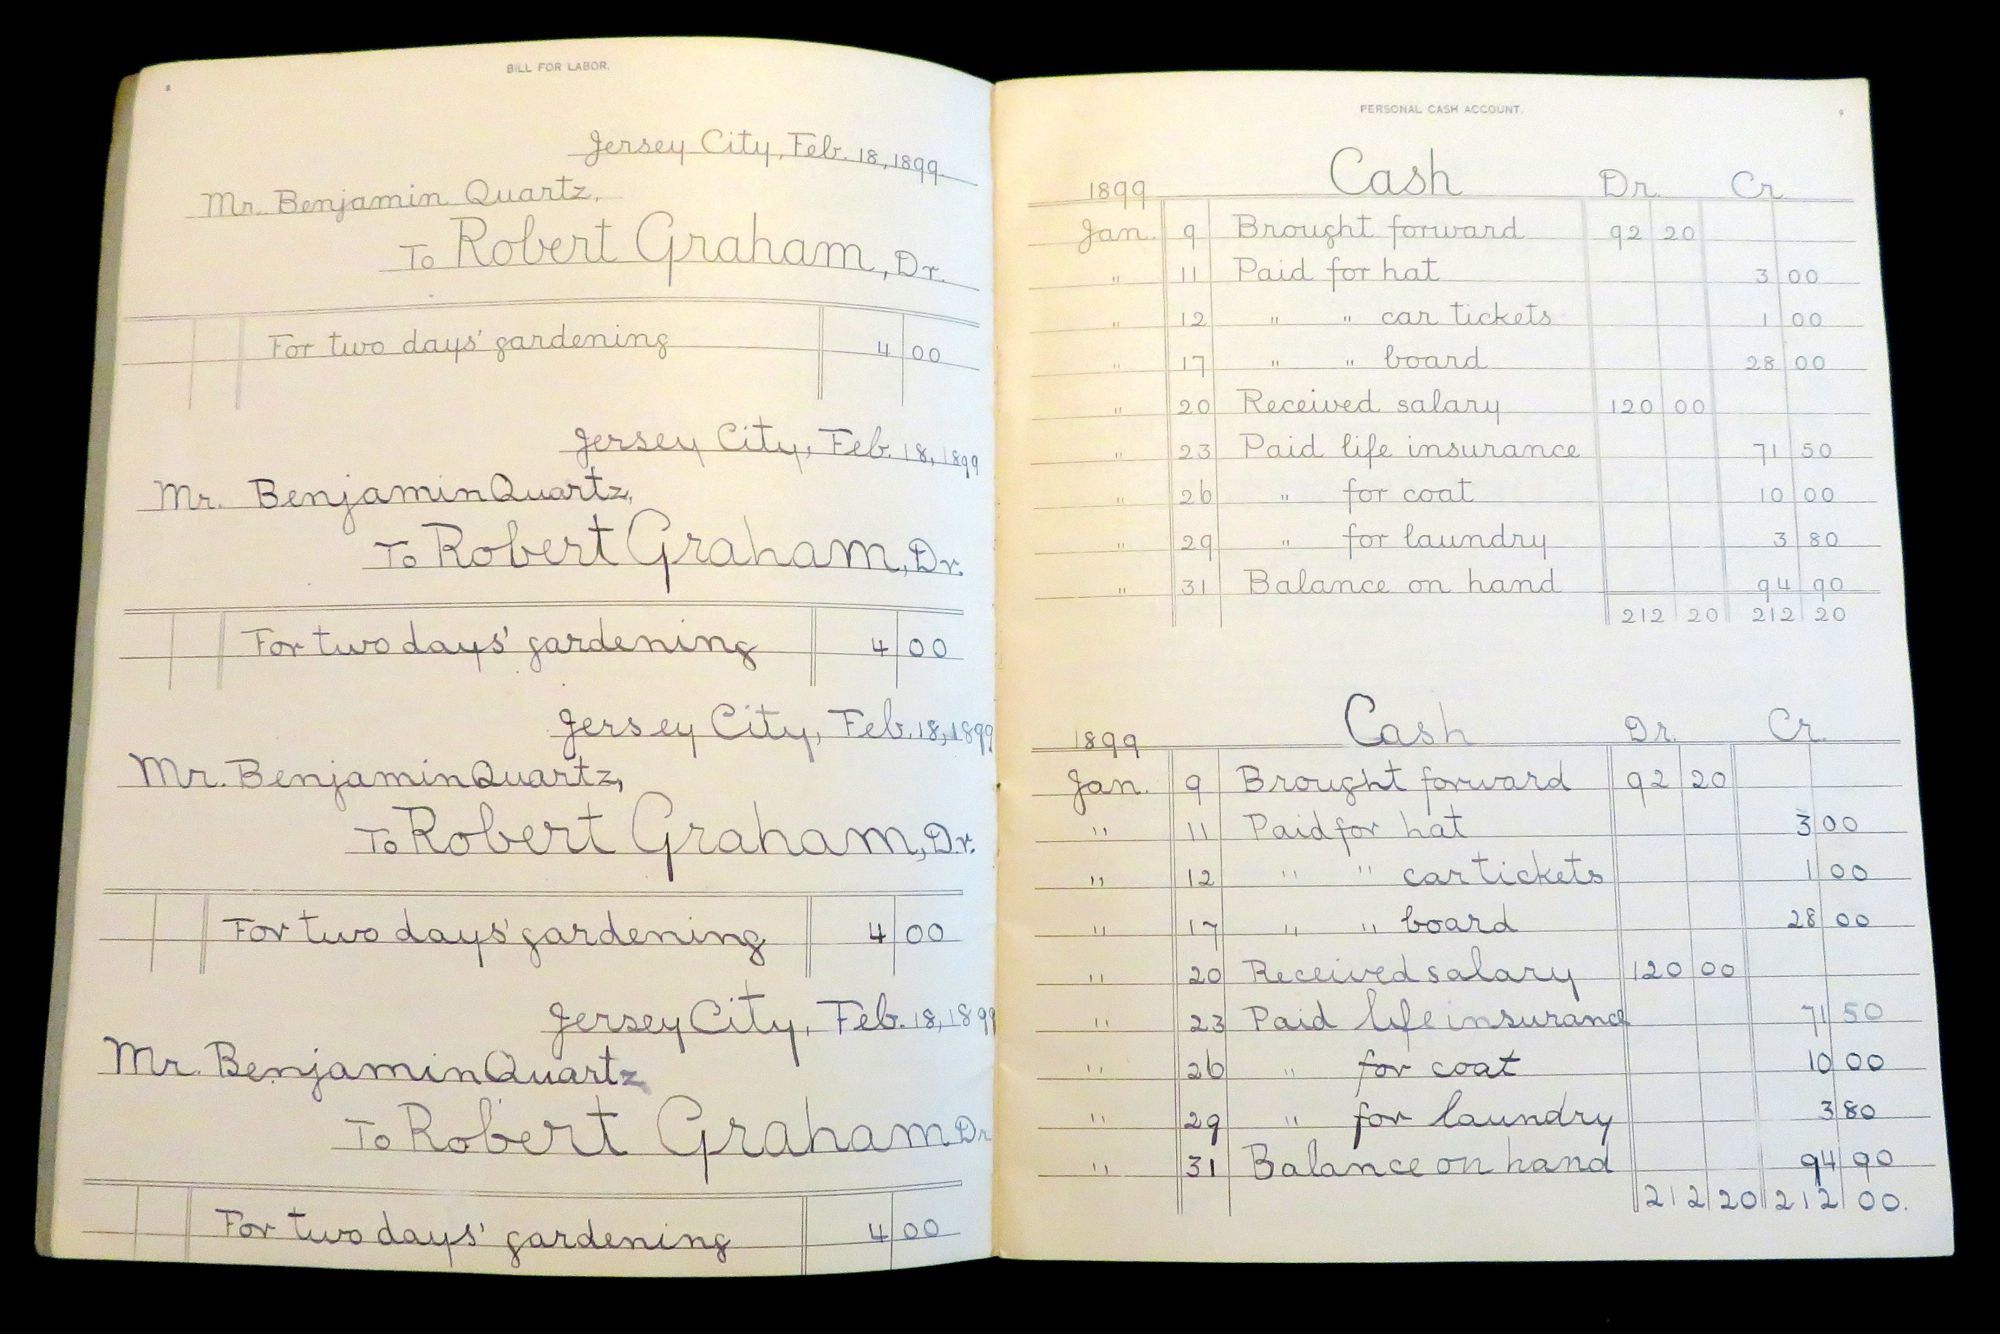 BILL FOR LABOR.
8
Jersey City, Feb. 18, 1899
Mr. Benjamin Quartz,
To Robert Graham, Dr.
For two days' gardening 4 00
Jersey City, Feb. 18, 1899
Mr. Benjamin Quartz,
To Robert Graham, Dr.
For two days' gardening 4 00
Jersey City, Feb. 18, 1899
Mr. Benjamin Quartz,
To Robert Graham, Dr.
For two days' gardening 4 00
Jersey City, Feb. 18, 1899
Mr. Benjamin Quartz
To Robert Graham Dr
For two days' gardening 4 00
PERSONAL CASH ACCOUNT.
9
1899 Cash Dr. Cr.
Jan. 9 Brought forward 92 20
" 11 Paid for hat 3 00
" 12 " " car tickets 1 00
" 17 " " board 28 00
" 20 Received salary 120 00
" 23 Paid life insurance 71 50
" 26 " for coat 10 00
" 29 " for laundry 3 80
" 31 Balance on hand 94 90
212 20 212 20
1899 Cash Dr. Cr.
Jan. 9 Brought forward 92 20
" 11 Paid for hat 3 00
" 12 " " car tickets 1 00
" 17 " " board 28 00
" 20 Received salary 120 00
" 23 Paid life insurance 71 50
" 26 " for coat 10 00
" 29 " for laundry 3 80
" 31 Balance on hand 94 90
212 20 212 00.